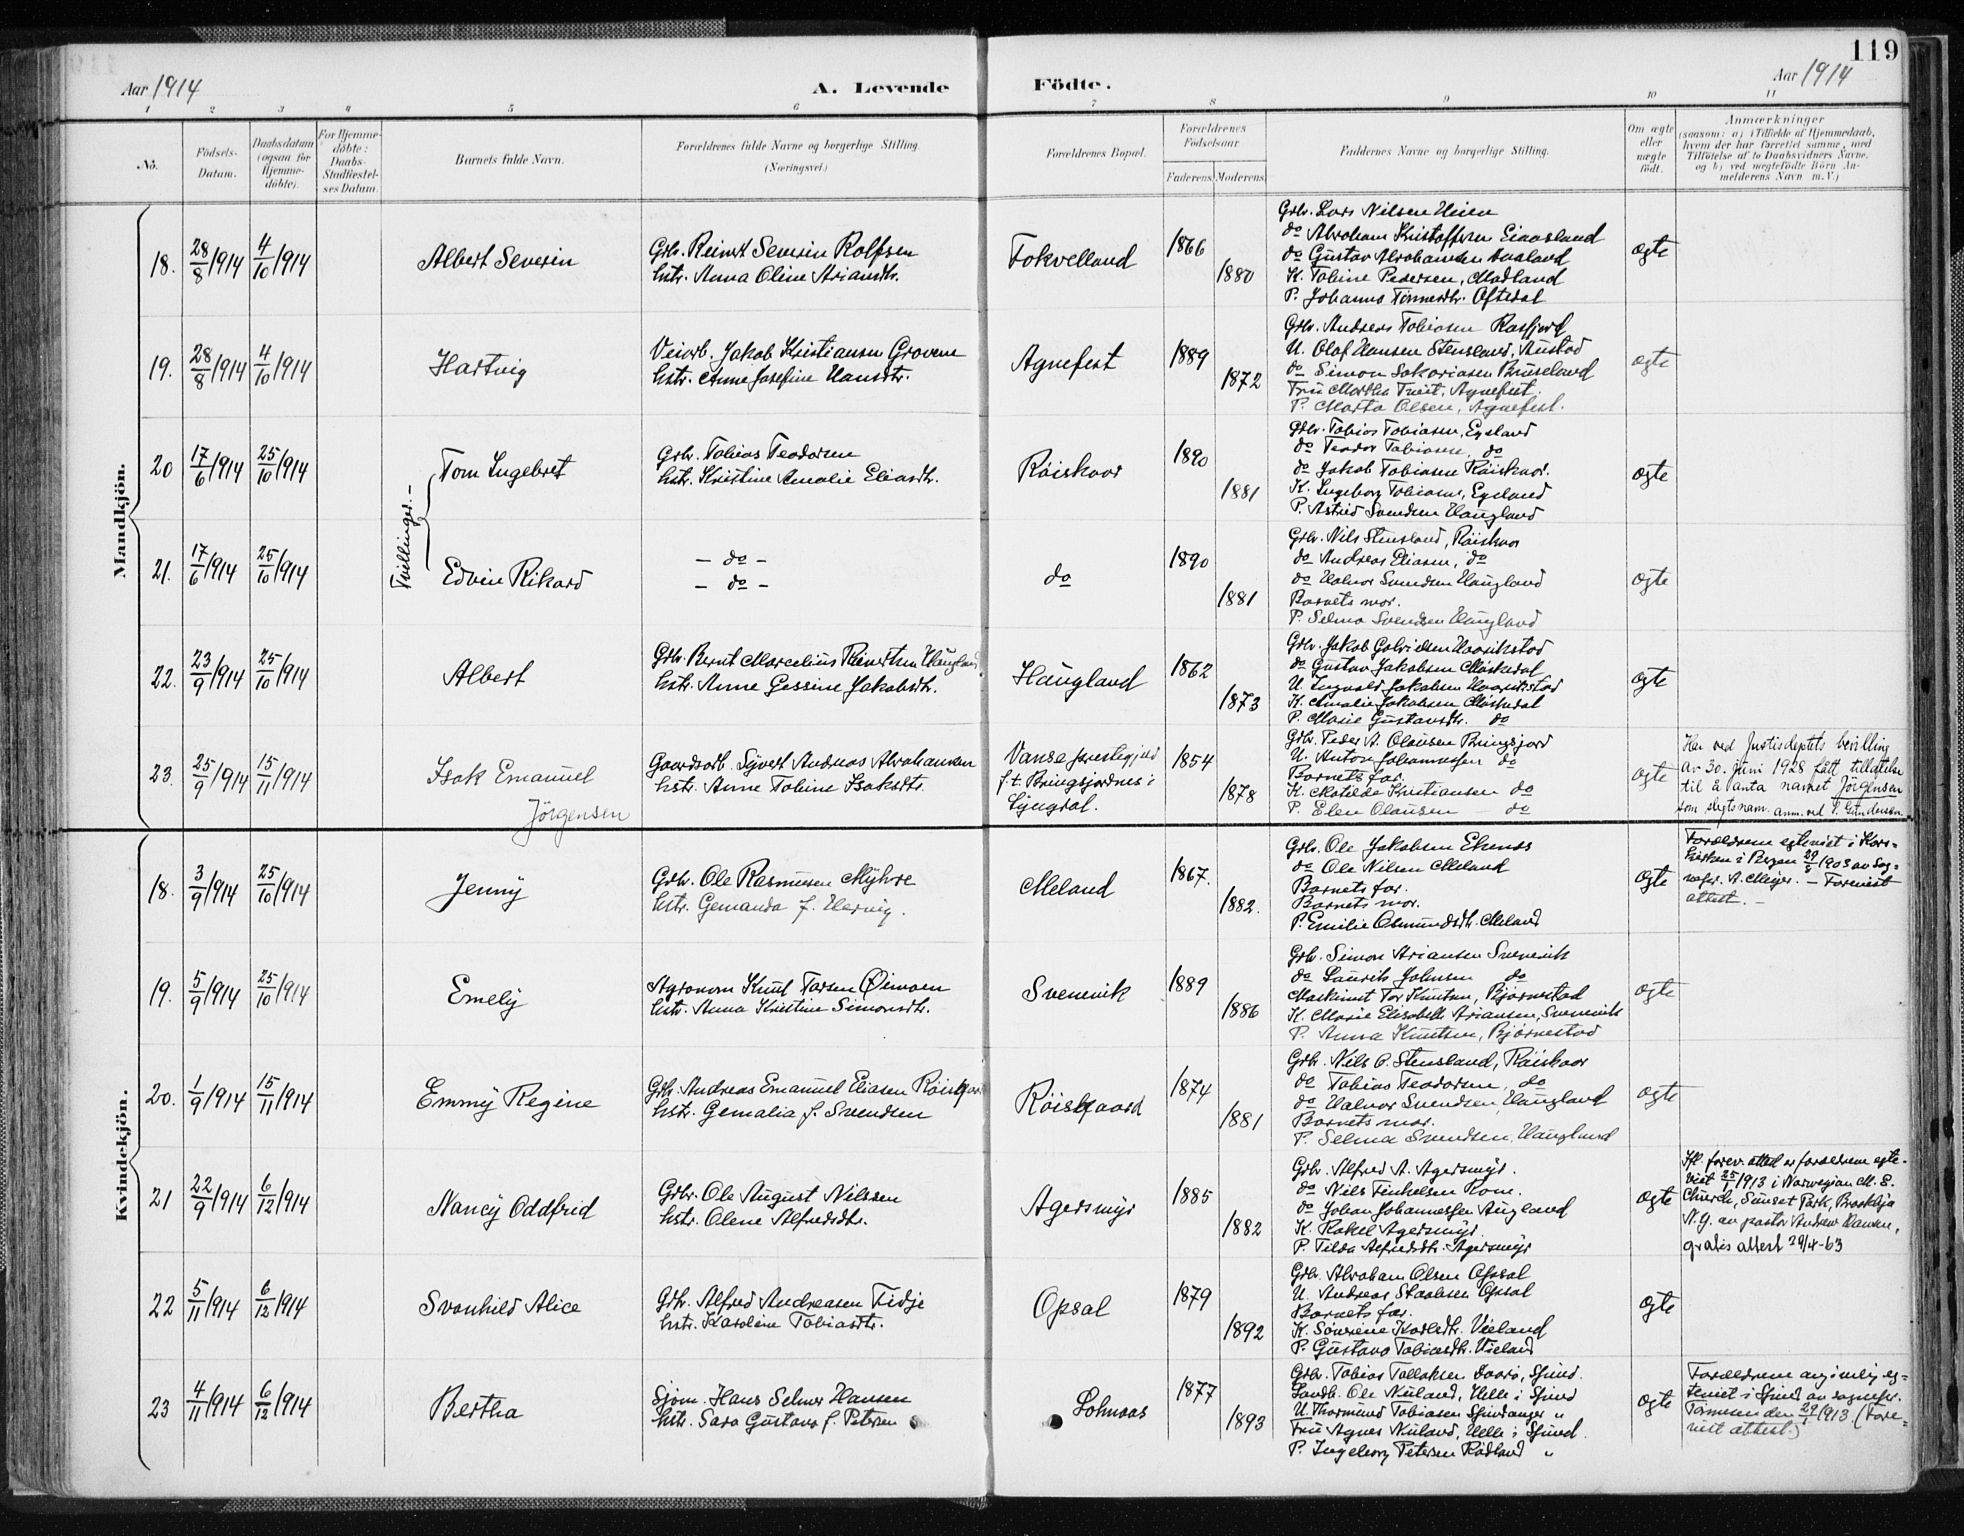 119
Aar 1914
A. Levende Födte.
Aar 1914
1 2 3 4 5 6 7 8 9 10 11
No.
Födsels-Datum.
Daabsdatum (ogsaa for Hjemme-döbte).
For Hjemme-döbte: Daabs-Stadfæstel-ses Datum.
Barnets fulde Navn.
Forældrenes fulde Navne og borgerlige Stilling. (Næringsvei.)
Forældrenes Bopæl.
Forældrenes Födselsaar.
Faderens. Moderens.
Faddernes Navne og borgerlige Stilling.
Om ægte eller uægte födt.
Anmærkninger
(saasom: a) i Tilfælde af Hjemmedaab,
hvem der har forrettet samme, med
Tilföielse af to Daabsvidners Navne,
og b) ved uægtefödte Börn An-
melderens Navn m. V.)
Mandkjön.
18. 28/8 1914 4/10 1914 Albert Severin
Grb. Reinert Severin Rolfsen
hstr. Anna Oline Ariansdtr.
Fokvelland 1866 1880
Grb. Lars Nilsen
do Abraham Kristoffersen
do Gustav Abrahamsen
K. Tobine Pedersen, Madland
P. Johanna Tönnesdtr. Oftedal
ægte
19. 28/8 1914 4/10 1914 Hartvig
Veiarb. Jakob Kristiansen Grovene
hstr. Anne Josefine Hansdtr.
Agnefest 1889 1872
Grb. Andreas Tobiasen Rosfjord
U. Olaf Hansen Stensland, Austad
do Simon Sakariasen Bruseland
Fru Martha Tveit, Agnefest.
P. Marta Olsen, Agnefest.
ægte
Tvillinger. -
20 17/6 1914 25/10 1914 Tom Ingebret
Grb. Tobias Teodorsen
hstr. Kristine Amalie Eliasdtr.
Röiskaar 1890 1881
Grb. Tobias Tobiasen, Egeland
do Teodor Tobiasen, do
do Jakob Tobiasen Röiskaar.
K. Ingeborg Tobiasen, Egeland
P. Astrid Svendsen Haugland
ægte
21. 17/6 1914 25/10 1914 Edvin Rikard
- do -
- do -
do 1890 1881
Grb. Nils Stensland, Röiskaar
do Andreas Eliasen, do
do Halvor Svendsen Haugland
Barnets mor.
P. Selma Svendsen Haugland
ægte
22. 23/9 1914 25/10 1914 Albert
Grb. Bernt Marcelius Reinertsen Haugland
hstr. Anne Gessine Jakobsdtr.
Haugland 1862 1873
Grb. Jakob Gabrielsen Haarikstad
do Gustav Jakobsen Möskedal
U. Ingvald Jakobsen Haarikstad
K. Amalie Jakobsen Möskedal
P. Marie Gustavsdtr. do
ægte
23. 25/9 1914 15/11 1914 Isak Emanuel
Jörgensen
Gaardsarb. Syvert Andreas Abrahamsen
hstr. Anne Tobine Isaksdtr.
Vanse prestegjeld
f. t. Bringsjordnes i
Lyngdal.
1854 1878
Grb. Peder A. Olausen Bringsjord
U. Anton Johannessen do
Barnets far.
K. Matilde Kristiansen do
P. Elen Olausen - do
ægte
Har ved Justisdeptets bevilling
av 30. juni 1928 fått tillatelse
til å anta navnet Jörgensen
som slegtsnavn. anm. ved S. Gundersen.
Kvindekjön.
18. 3/9 1914 25/10 1914 Jenny
Grb. Ole Rasmusen Myhre
hstr. Gemanda f. Hervig.
Meland 1867. 1882.
Grb. Ole Jakobsen Ekenes
do Ole Nilsen Meland
Barnets far.
Barnets mor.
P. Emilie Osmundsdtr. Meland
ægte
Forældrene egteviet i Kors-
kirken i Bergen 29/8 1903 av sog-
nepr. A. Meyer. - Forevist
attest. -
19. 5/9 1914 25/10 1914 Emely
Agronom Knut Tarsen Öimoen
hstr. Anna Kristine Simonsdtr.
Svenevik 1889 1886
Grb. Simon Ariansen Svenevik
do Laurits Johnsen do
Maskinist Tor Knutsen, Bjørnestad
K. Marie Elisabeth Ariansen, Svenevik
P. Anna Knutsen, Bjørnestad
ægte
20. 1/9 1914 15/11 1914 Emmy Regine
Grb. Andreas Emanuel Eliasen Röiskaar
hstr. Gemalia f. Svendsen
Röiskaard 1874 1881
Grb. Nils O. Stensland, Röiskaar
do Tobias Teodorsen, do
do Halvor Svendsen, Haugland
Barnets mor.
P. Selma Svendsen, Haugland
ægte
21 22/9 1914 6/12 1914 Nancy Oddfrid
Grbr. Ole August Nilssen
hstr. Olene Alfredsdtr.
Agersmyr 1885 1882
Grb. Alfred A. Agersmyr.
do Nils Tinkelsen Rom.
do Johan Johannessen Augland
K. Rakel Agersmyr.
P. Tilda Alfredsdtr. Agersmyr
ægte
Ifl. forev. attest er forældrene egte-
viet 25/1 1913 i Norwegian M. E.
Church, Sunset Park, Brooklyn
N.Y. av pastor Andrew Hansen,
gratis attest 29/4-63
22 5/11 1914 6/12 1914 Svanhild Alice
Grb. Alfred Andreasen Fidje
hstr. Karoline Tobiasdtr.
Opsal 1879 1892
Grb. Abraham Olsen Opsal
U. Andreas Staalesen Opsal
Barnets far.
K. Sörine Karlsdtr. Vieland
P. Gustava Tobiasdtr. Vieland
ægte
23 4/11 1914 6/12 1914 Bertha
Sjöm. Hans Selmer Hansen
hstr. Sara Gustava f. Petersen
Lohnaas 1877 1893
Grb. Tobias Tollaksen Spind.
Landh. Ole Nuland, Helle i Spind
U. Thormund Tobiasen Spindsanger "
Fru Agnes Nuland, Helle i Spind.
P. Ingeborg Petersen Rödland "
ægte
Forældrene angivelig eg-
teviet i Spind av sognepr.
Tönnesen den 29/ 1913. (Fore-
vist attest.)